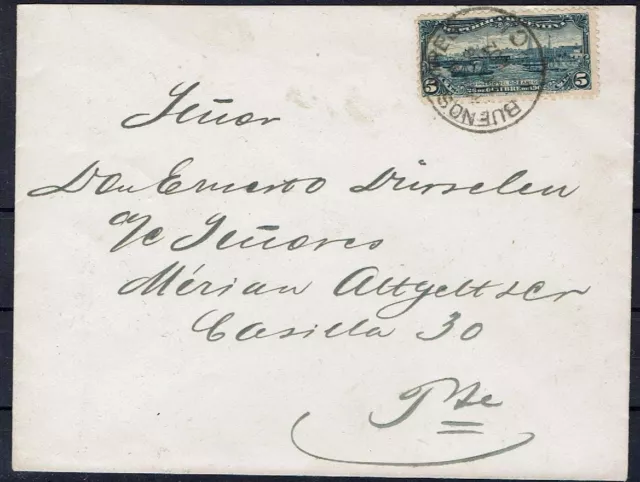 5 5
BUENOS AIRES
Señor
Don Ernesto Dürselen
a/c Señores
Mérian Altgelt & Cr
Casilla 30
Pte